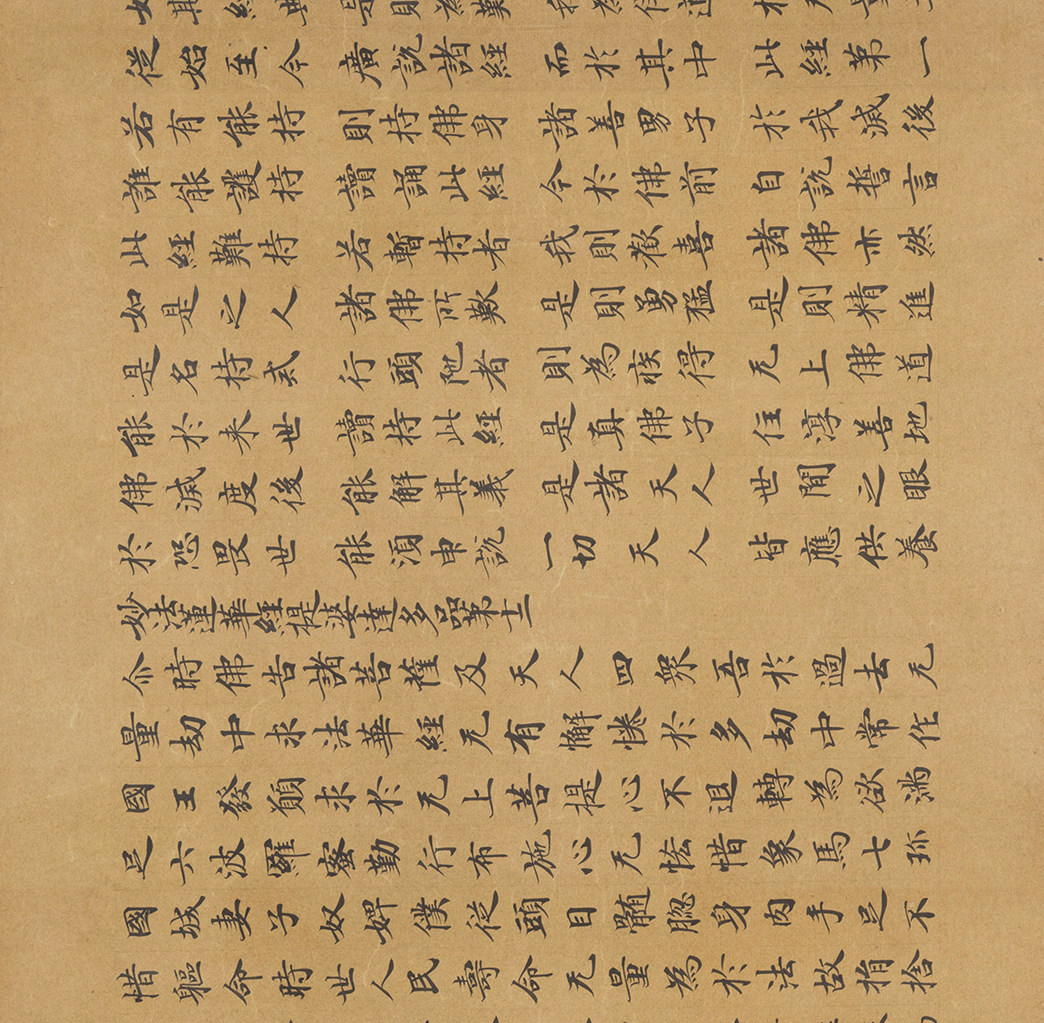 如斯經典是則為難我為佛道於无量土
從始至今廣說諸經而於其中此經第一
若有能持則持佛身諸善男子於我滅後
誰能護持讀誦此經今於佛前自說誓言
此經難持若暫持者我則歡喜諸佛亦然
如是之人諸佛所歎是則勇猛是則精進
是名持戒行頭陁者則為疾得无上佛道
能於来世讀持此經是真佛子住淳善地
佛滅度後能解其義是諸天人世間之眼
於恐畏世能須臾說一切天人皆應供養
妙法蓮華經提婆達多品第十二
尒時佛告諸菩薩及天人四衆吾於過去无
量劫中求法華經无有懈惓於多劫中常作
國王發願求於无上菩提心不退轉為欲滿
足六波羅蜜勤行布施心无悋惜象馬七珎
國城妻子奴婢僕從頭目髓腦身肉手足不
惜軀命時世人民壽命无量為於法故捐捨